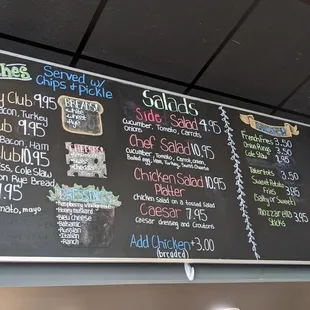 hes
Served w/
Chips & Pickle
y Club 9.95
acon, Turkey
Club 9.95
acon, Ham
lub 10.95
ss, Cole Slaw
d Rye Bread
9.95
omato, mayo
BREADS
White
Wheat
Rye
CHEESES
DRESSINGS
Raspberry Vinaigrette
Honey Mustard
Bleu Cheese
Balsamic
Russian
Italian
Ranch
Salads
Side Salad 4.95
Cucumber, Tomato, Carrots
Onion
Chef Salad 10.95
Cucumber, Tomato, Carrot, onion,
Boiled egg, Ham, turkey, Swiss Cheese
Chicken Salad 10.95
Platter
Chicken salad on a tossed Salad
Caesar 7.95
Caesar dressing and Croutons
Add Chicken +3.00
(breaded)
French Fries 2.50
Onion Rings 3.95
Cole Slaw 1.95
Tater tots 3.50
Sweet Potato 3.95
Fries
(Salty or Sweet)
Mozzarella 3.95
Sticks